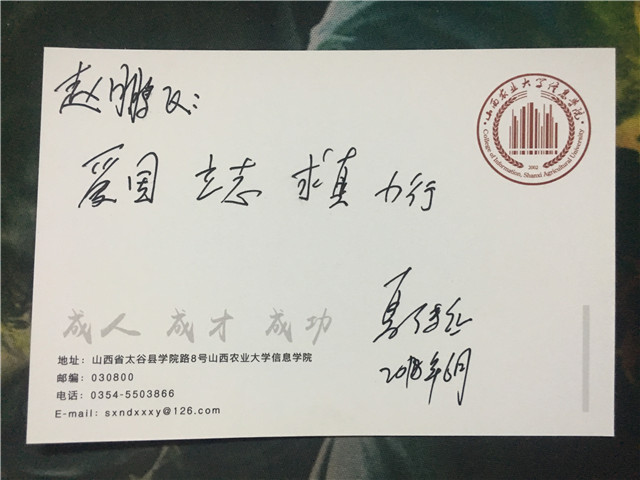 赵鹏飞:
山西农业大学信息学院
College of Information, Shanxi Agricultural University
2002
爱国 立志 求真 力行
成人 成才 成功
2018年6月
地址：山西省太谷县学院路8号山西农业大学信息学院
邮编：030800
电话：0354-5503866
E-mail：sxndxxxy@126.com